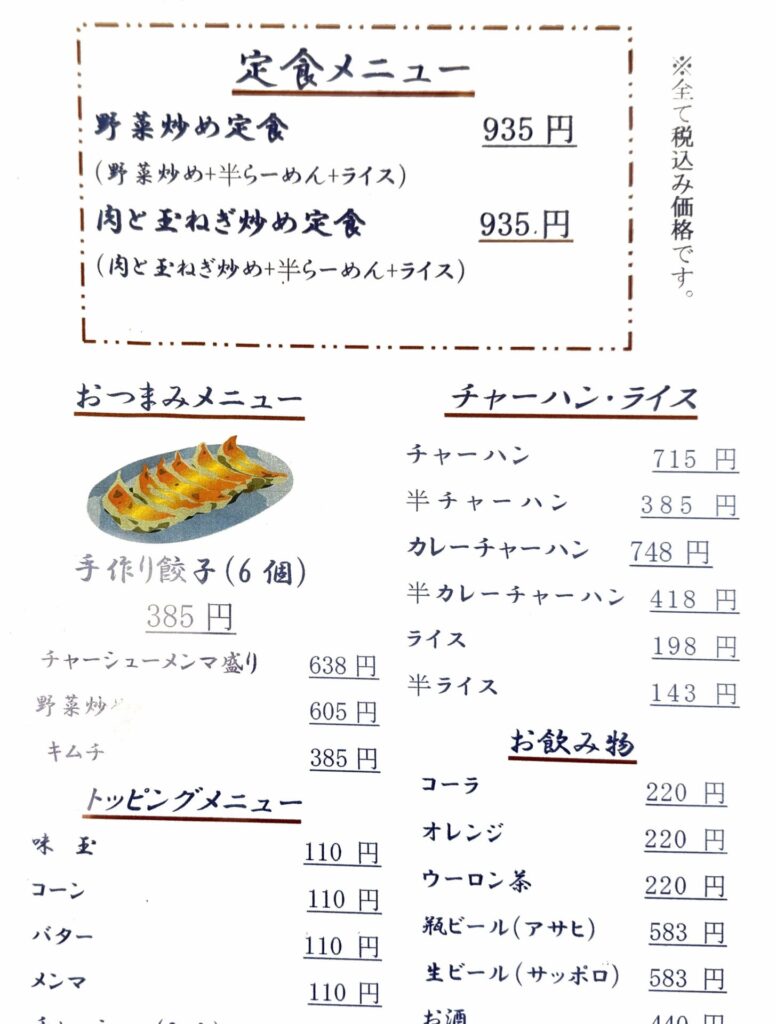 定食メニュー
野菜炒め定食 935円
(野菜炒め+半らーめん+ライス)
肉と玉ねぎ炒め定食 935円
(肉と玉ねぎ炒め+半らーめん+ライス)
※全て税込み価格です。
おつまみメニュー
手作り餃子(6個)
385円
チャーシューメンマ盛り 638円
野菜炒め 605円
キムチ 385円
トッピングメニュー
味玉 110円
コーン 110円
バター 110円
メンマ 110円
チャーハン・ライス
チャーハン 715円
半チャーハン 385円
カレーチャーハン 748円
半カレーチャーハン 418円
ライス 198円
半ライス 143円
お飲み物
コーラ 220円
オレンジ 220円
ウーロン茶 220円
瓶ビール(アサヒ) 583円
生ビール(サッポロ) 583円
お酒 440円